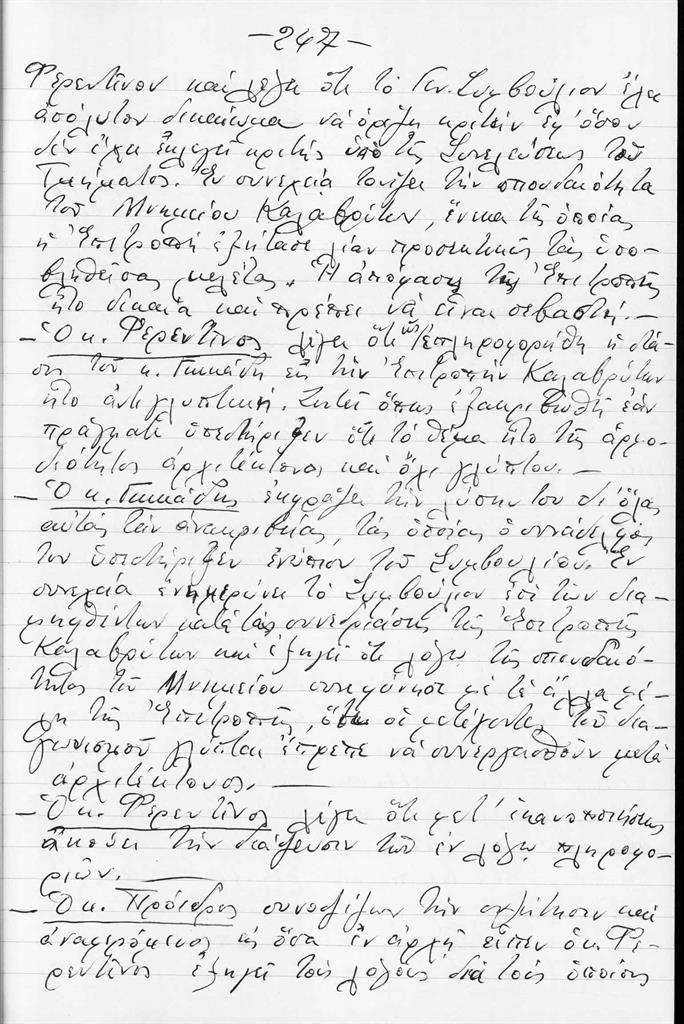 -247-
Φερεντῖνον καὶ λέγει ὅτι τὸ Γεν. Συμβούλιον ἔχει
ἀπόλυτον δικαίωμα νὰ ὁρίζῃ κριτὴν ἐφ' ὅσον
δὲν ἔχει ἐκλεγῆ κριτὴς ὑπὸ τῆς Συνελεύσεως τοῦ
Τμήματος. Ἐν συνεχείᾳ τονίζει τὴν σπουδαιότητα
τοῦ Μνημείου Καλαβρύτων, ἕνεκα τῆς ὁποίας
ἡ Ἐπιτροπὴ ἐξήτασε λίαν προσεκτικῶς τὰς ὑπο-
βληθείσας μελέτας. Ἡ ἀπόφασις τῆς Ἐπιτροπῆς
ἦτο δικαία καὶ πρέπει νὰ εἶναι σεβαστή.-
- Ὁ κ. Φερεντῖνος λέγει ὅτι ὡς ἐπληροφορήθη ἡ στά-
σις τοῦ κ. εἰς τὴν Ἐπιτροπὴν Καλαβρύτων
ἦτο ἀντιγλυπτική. Ζητεῖ ὅπως ἐξακριβωθῇ ἐὰν
πράγματι ὑπεστήριξεν ὅτι τὸ θέμα ἦτο τῆς ἁρμο-
διότητος ἀρχιτέκτονος καὶ ὄχι γλύπτου.-
- Ὁ κ. ἐκφράζει τὴν λύπην του δι' ὅλας
αὐτὰς τὰς ἀνακριβείας, τὰς ὁποίας ὁ συνάδελφός
του ὑπεστήριξεν ἐνώπιον τοῦ Συμβουλίου. Ἐν
συνεχείᾳ ἐνημερώνει τὸ Συμβούλιον ἐπὶ τῶν δια-
μειφθέντων κατὰ τὰς συνεδριάσεις τῆς Ἐπιτροπῆς
Καλαβρύτων καὶ ἐξηγεῖ ὅτι λόγῳ τῆς σπουδαιό-
τητος τοῦ Μνημείου συνεφώνησε μὲ τὰ ἄλλα μέ-
λη τῆς Ἐπιτροπῆς, ὅτι οἱ μετέχοντες τοῦ δια-
γωνισμοῦ γλύπται ἔπρεπε νὰ συνεργασθοῦν μετὰ
ἀρχιτέκτονος. -
- Ὁ κ. Φερεντῖνος λέγει ὅτι μετ' ἱκανοποιήσεως
ἀκούει τὴν διάψευσιν τῶν ἐν λόγῳ πληροφο-
ριῶν. -
- Ὁ κ. Πρόεδρος συνοψίζων τὴν συζήτησιν καὶ
ἀναφερόμενος εἰς ὅσα ἐν ἀρχῇ εἶπεν ὁ κ. Φε-
ρεντῖνος ἐξηγεῖ τοὺς λόγους διὰ τοὺς ὁποίους